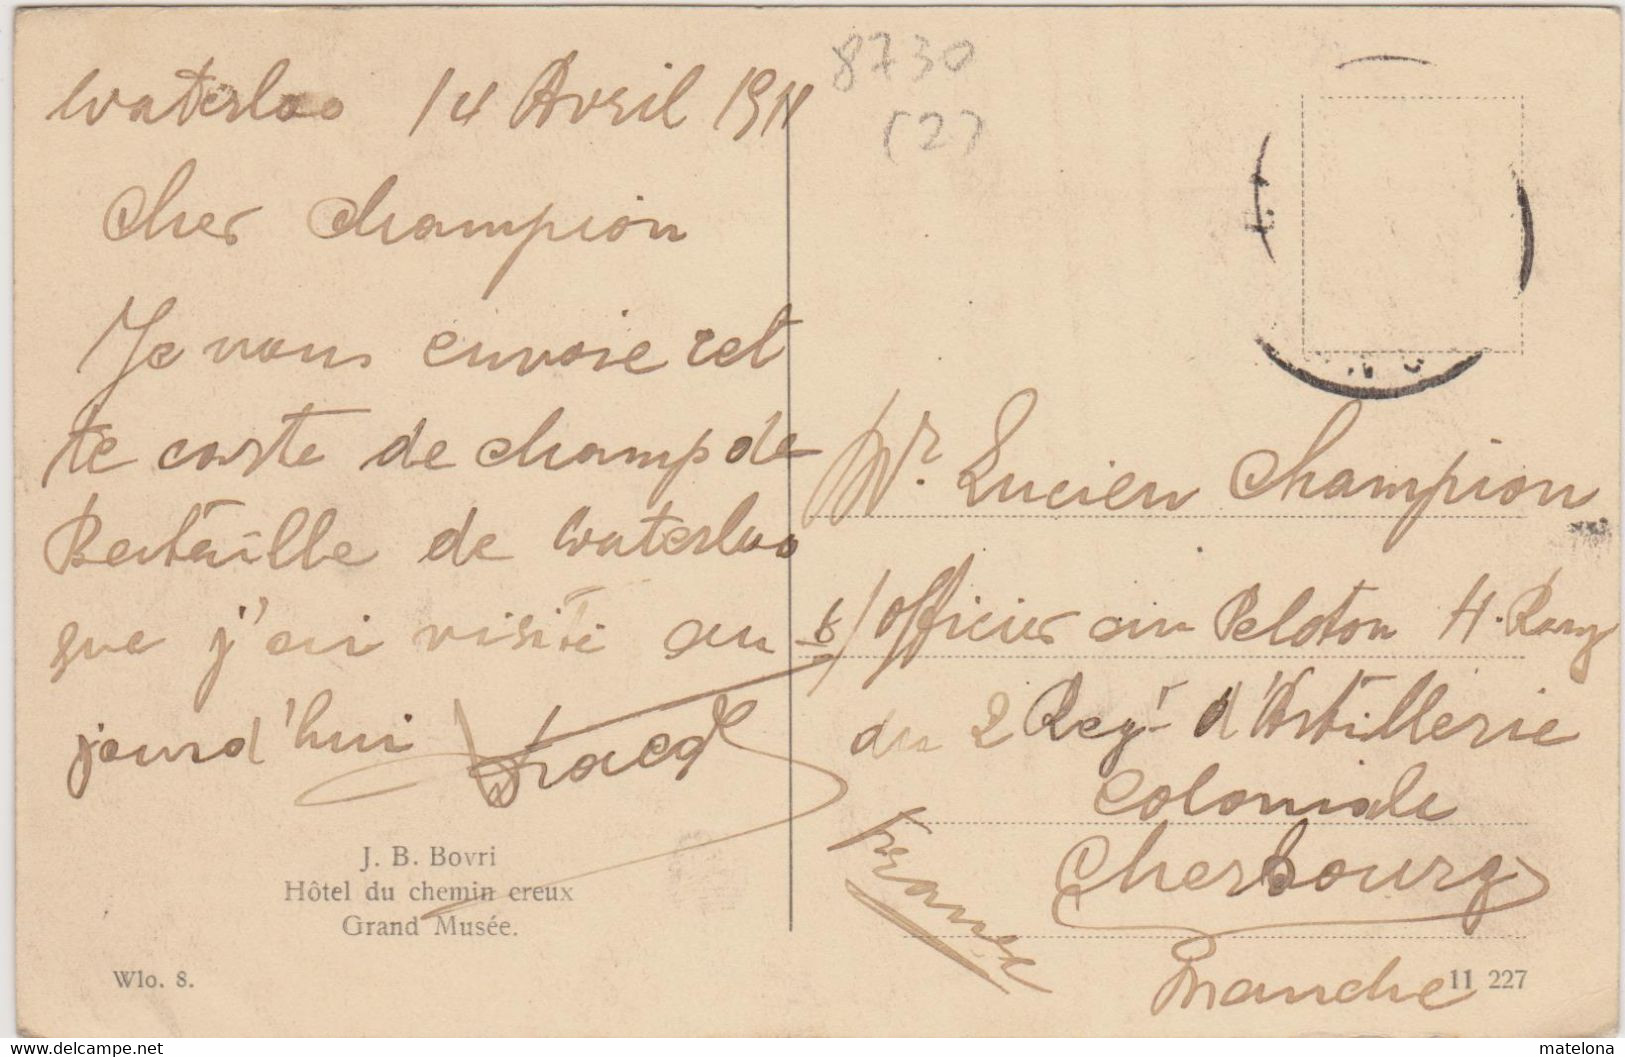 8730
(2)
Waterloo 14 Avril 1911
Cher Champion
Je vous envoie cet
te carte de champ de
Bataille de Waterloo
que j'ai visité au
jourd'hui
J. B. Bovri
Hôtel du chemin creux
Grand Musée.
Wlo. 8.
Mr. Lucien Champion
s/officier au Peloton H. Rang
du 2 Regt d'Artillerie
Coloniale
Cherbourg
Manche
France
11 227
www.delcampe.net
matelona